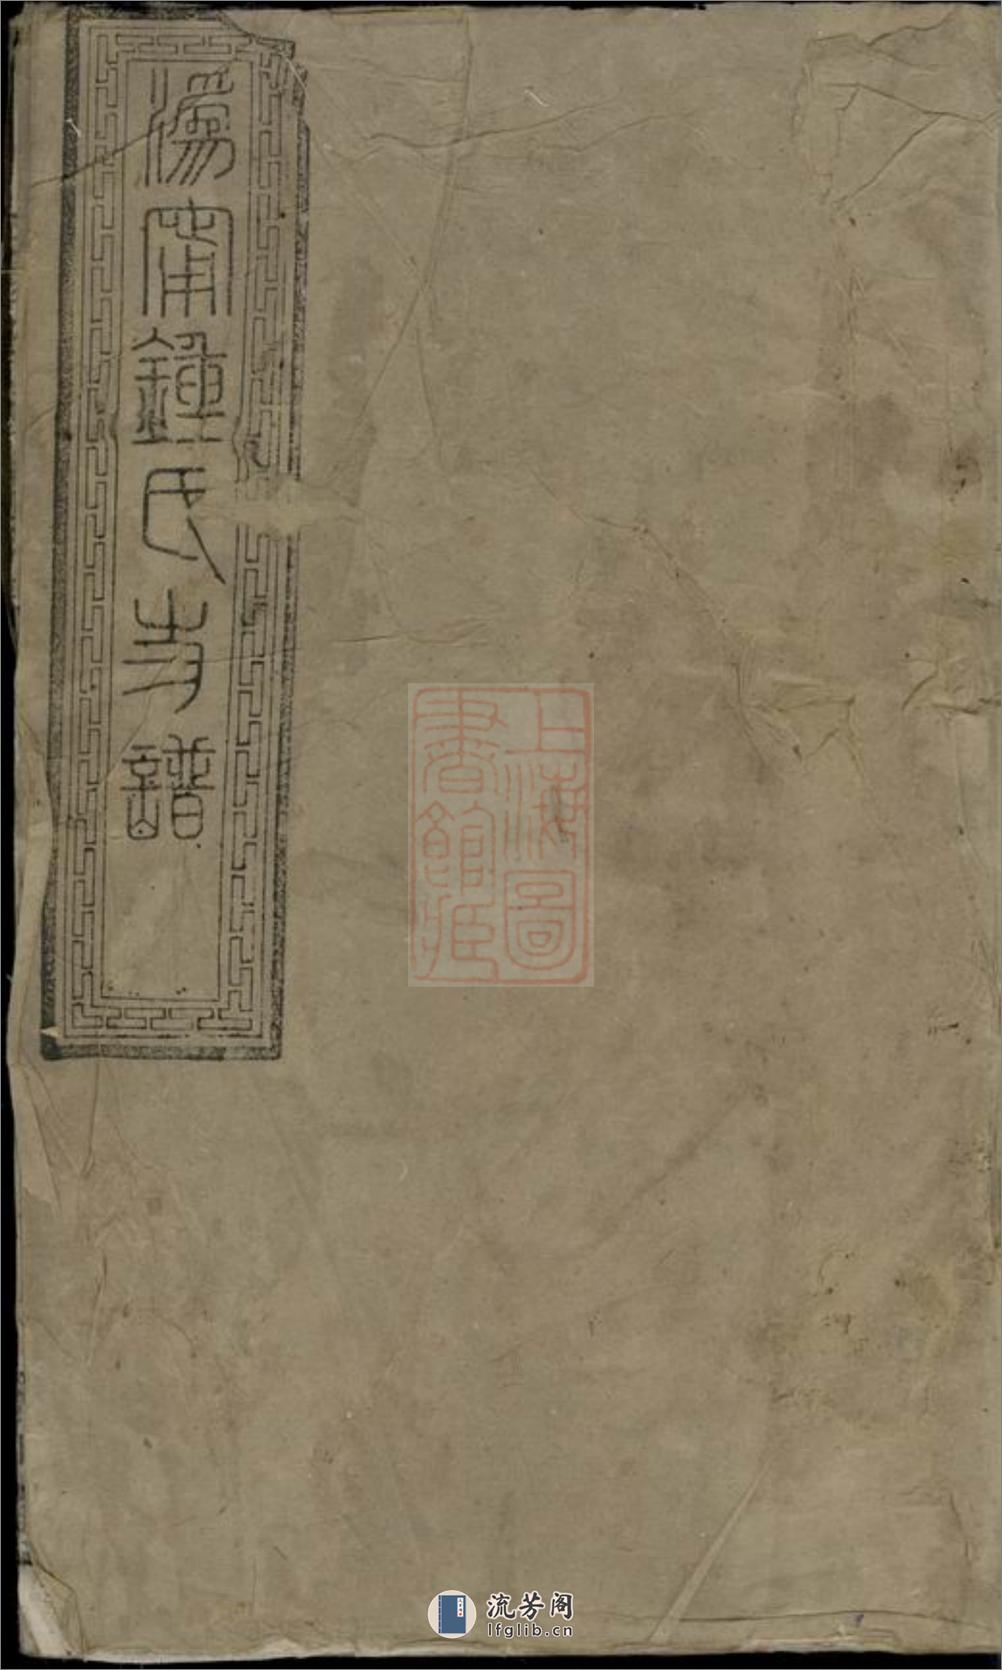 潙甯鍾氏支譜
上海圖
書館藏
流芳阁
lfglib.cn